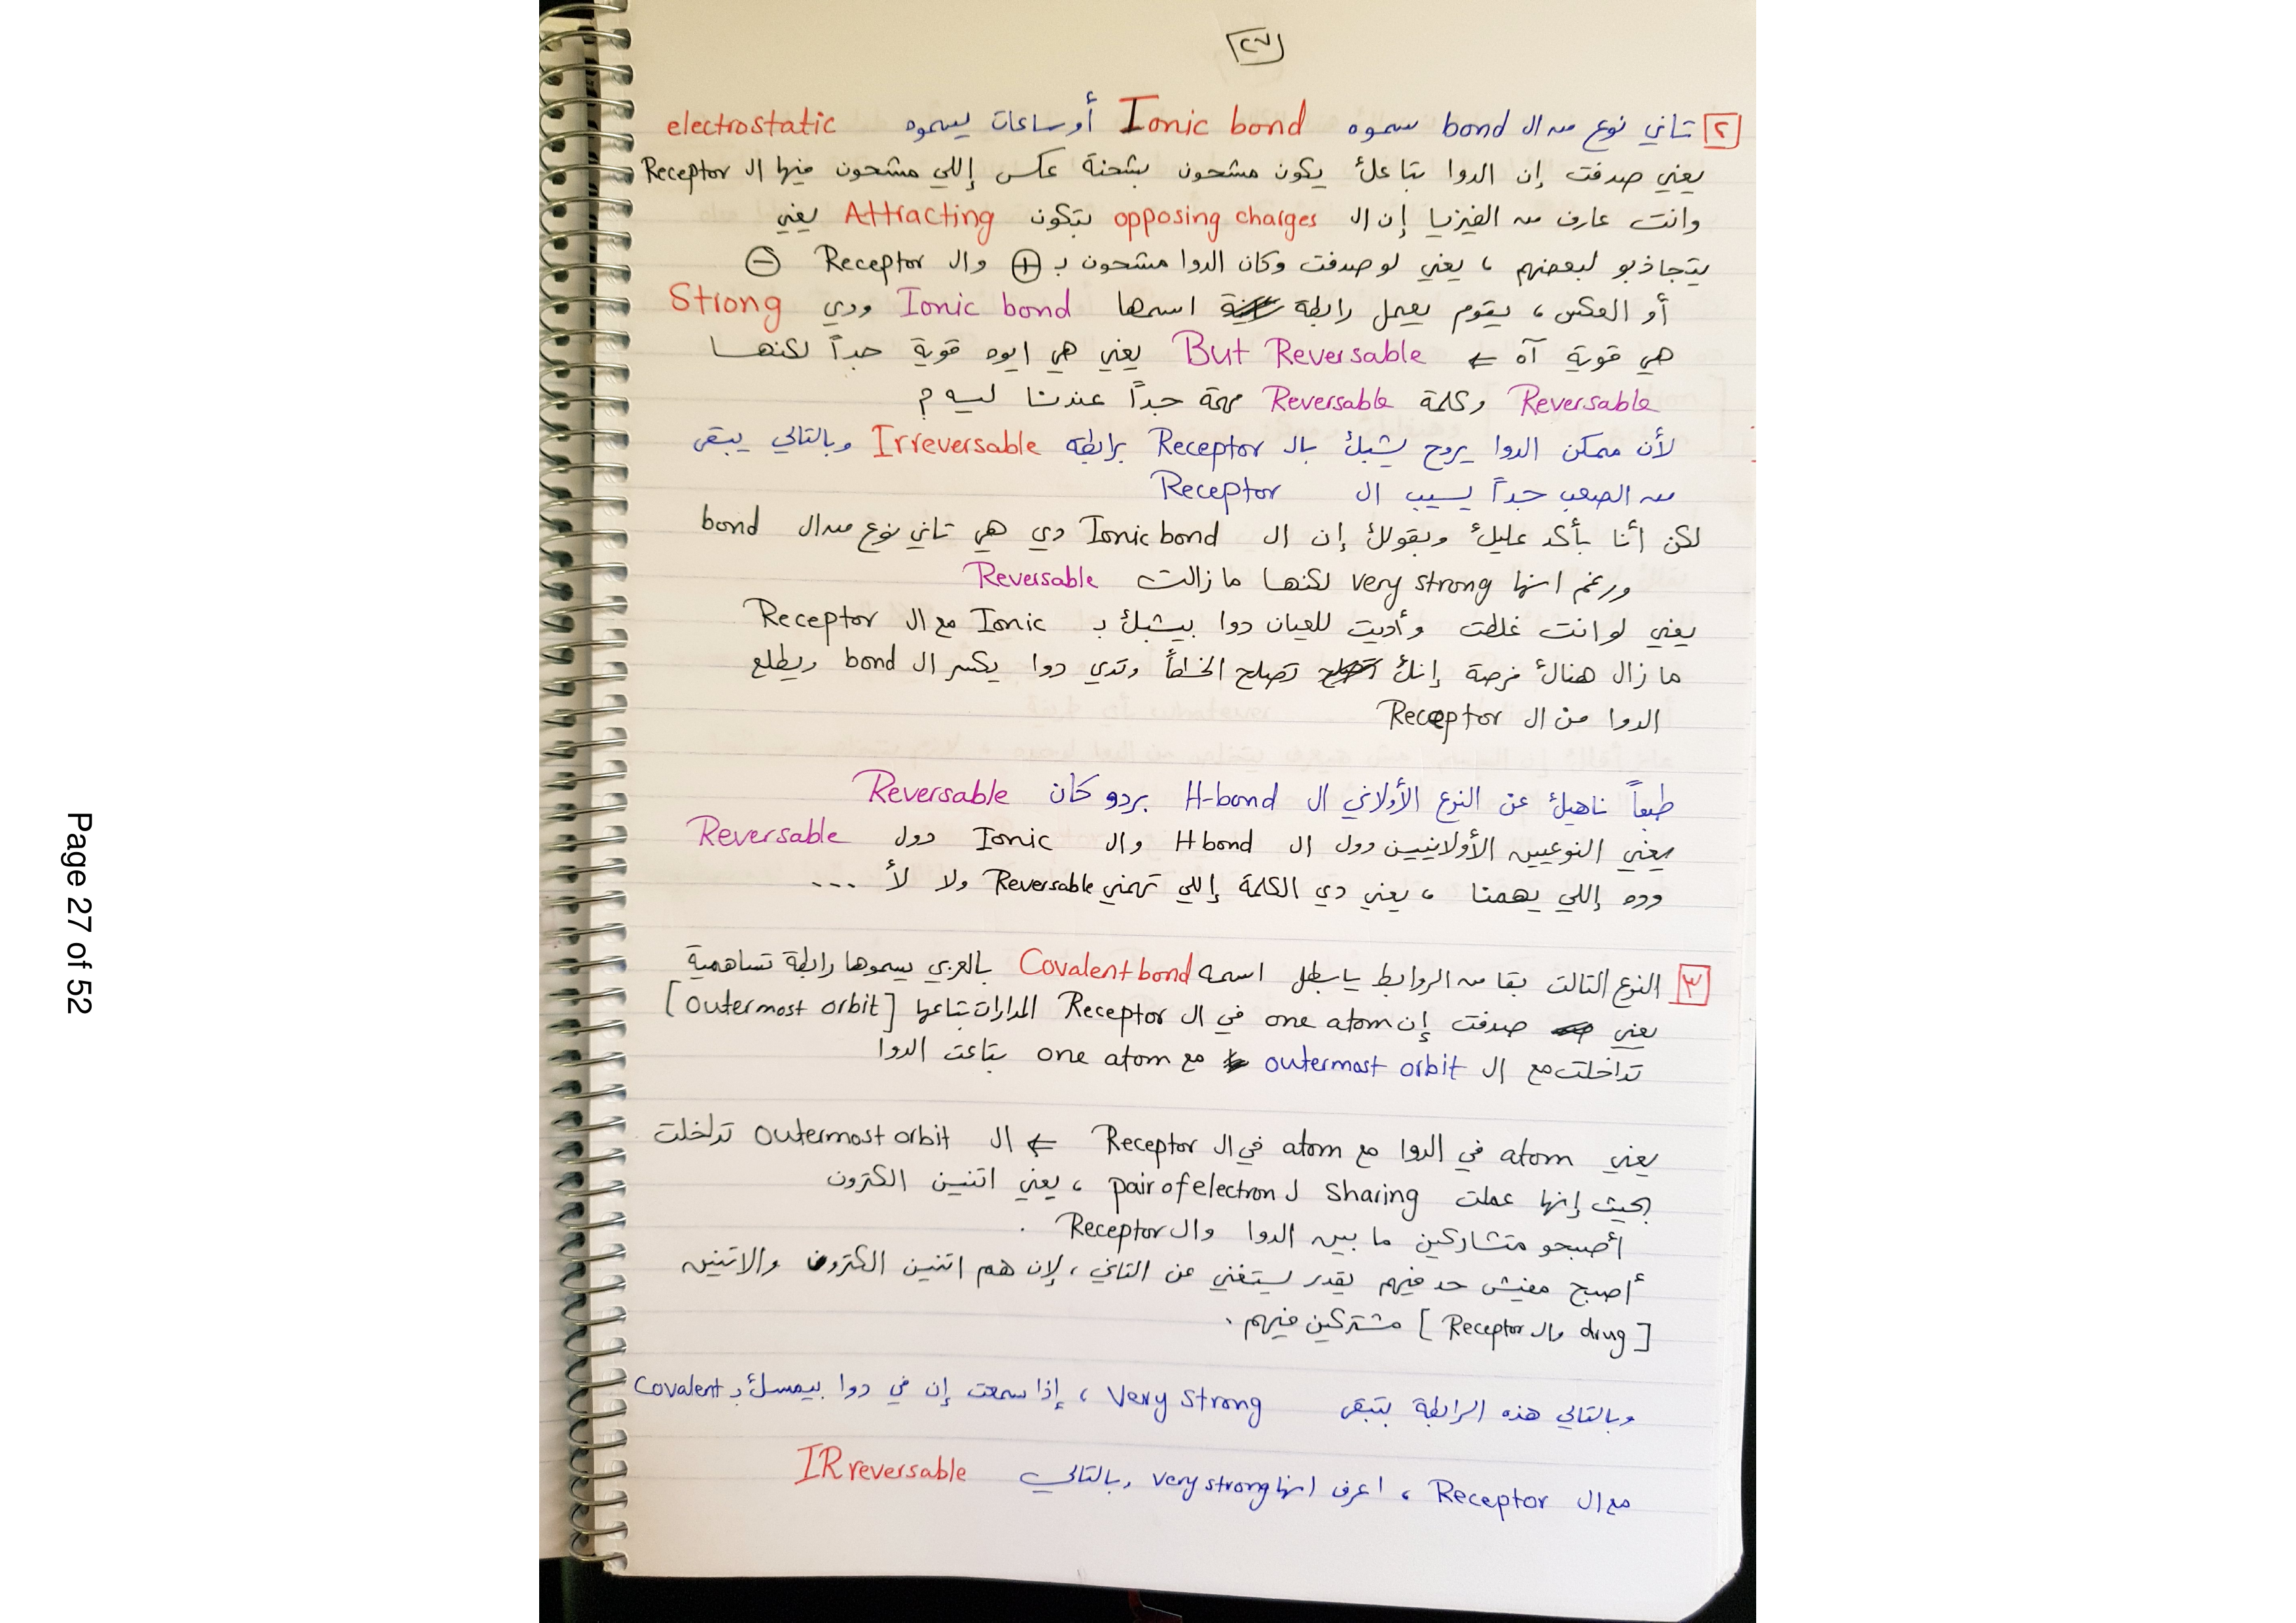 ٢٧
٢ تاني نوع من ال bond سموه Ionic bond أو ساعات يسموه electrostatic
يعني صدفت إن الدوا بتاعك يكون مشحون بشحنة عكس إللي مشحون فيها ال Receptor
وانت عارف من الفيزيا إن ال opposing charges بتكون Attracting يعني
يتجاذبو لبعضهم ، يعني لو صدفت وكان الدوا مشحون ب + وال Receptor -
أو العكس ، يقوم يعمل رابطة اسمها Ionic bond ودي Strong
هي قوية آه ← But Reversable يعني هي ايوه قوية جداً لكنها
Reversable وكلمة Reversable مهمة جداً عندنا ليه ؟
لأن ممكن الدوا يروح يشبك بال Receptor برابطه Irreversable وبالتالي يبقى
من الصعب جداً يسيب ال Receptor
لكن أنا بأكد عليك وبقولك إن ال Ionic bond دي هي تاني نوع من ال bond
ورغم انها very strong لكنها ما زالت Reversable
يعني لو انت غلطت وأديت للعيان دوا بيشبك ب Ionic مع ال Receptor
ما زال هناك فرصة إنك تصلح الخطأ وتدي دوا يكسر ال bond ويطلع
الدوا من ال Receptor
طبعاً ناهيك عن النوع الأولاني ال H-bond بردو كان Reversable
يعني النوعيين الأولانيين دول ال H bond وال Ionic دول Reversable
وده إللي يهمنا ، يعني دي الكلمة إللي تهمني Reversable ولا لأ ...
٣ النوع التالت بقا من الروابط يا بطل اسمه Covalent bond بالعربي يسموها رابطة تساهمية
يعني صدفت إن one atom في ال Receptor المدارات بتاعها [outermost orbit]
تداخلت مع ال outermost orbit مع one atom بتاعت الدوا
يعني atom في الدوا مع atom في ال Receptor ← ال outermost orbit تداخلت
بحيث إنها عملت Sharing ل pair of electron ، يعني اتنين الكترون
أصبحو متشاركين ما بين الدوا وال Receptor .
أصبح مفيش حد فيهم يقدر يستغني عن التاني ، لإن هم اتنين الكترون والاتنين
[drug وال Receptor] مشتركين فيهم .
وبالتالي هذه الرابطة بتبقى Very Strong ، إذا سمعت إن في دوا بيمسك ب Covalent
مع ال Receptor ، اعرف انها very strong وبالتالي IRreversable
Page 27 of 52